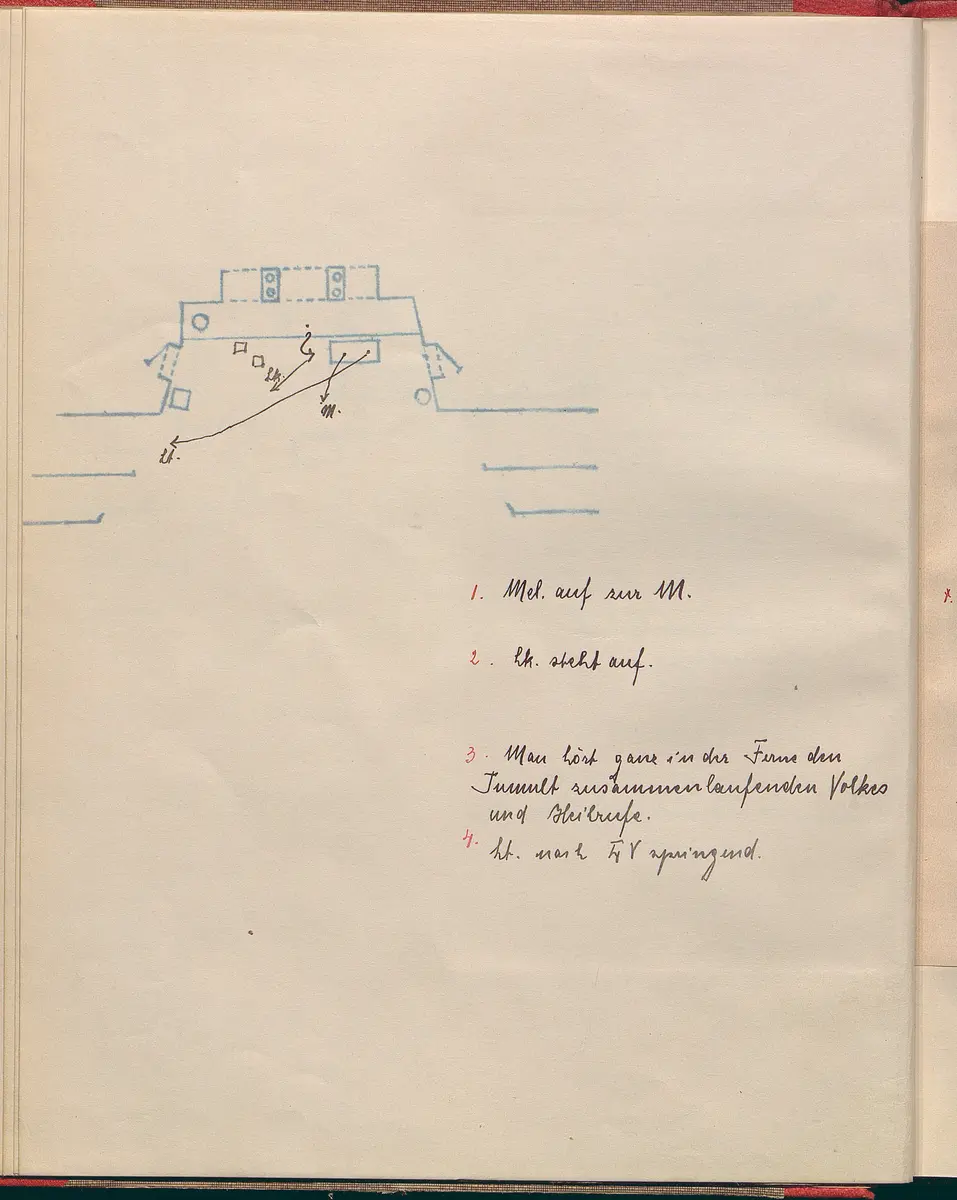 Lk.
M.
Lt.
1. Mel. auf zur M.
2. Lk. steht auf.
3. Man hört ganz in der Ferne den
Tumult zusammenlaufenden Volkes
und Heilrufe.
4. Lt. nach V springend.